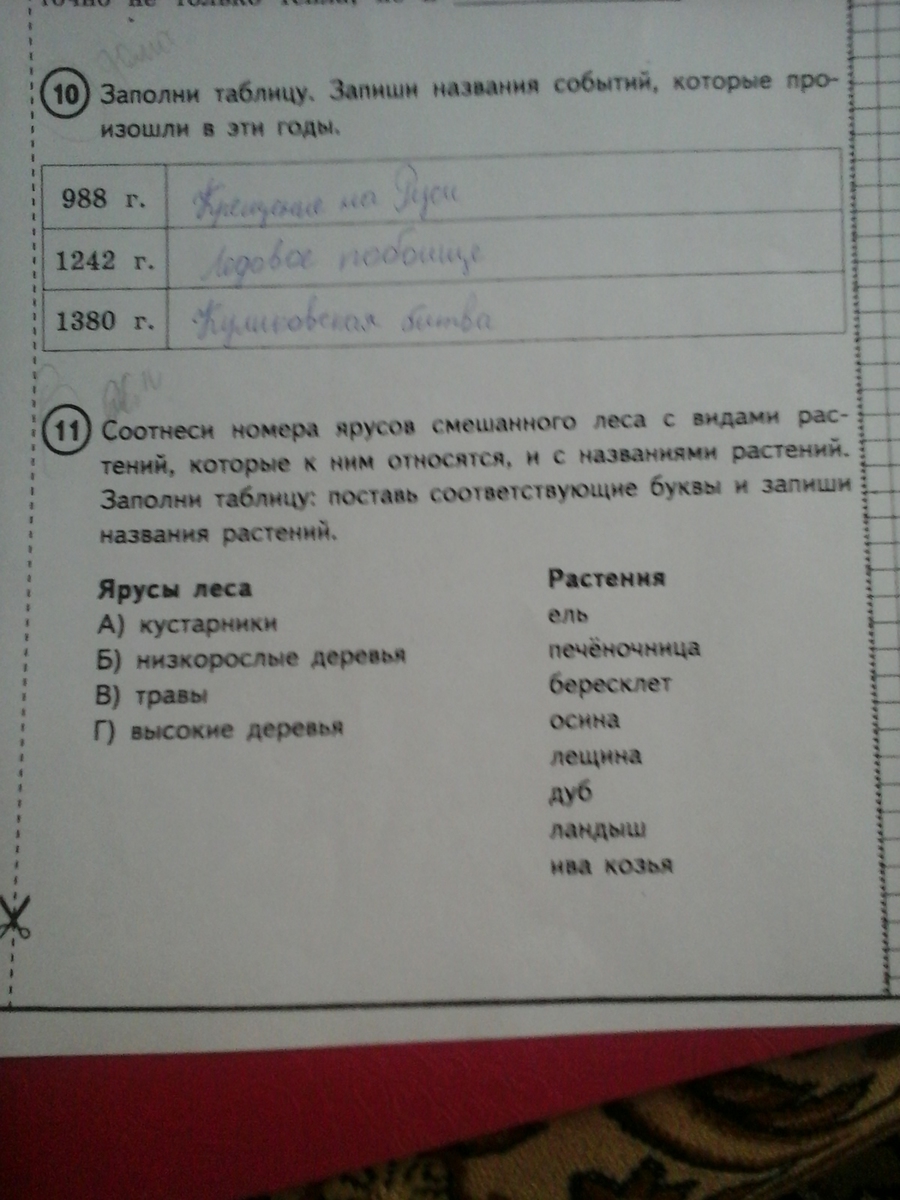 точно не только
10 Заполни таблицу. Запиши названия событий, которые про-
изошли в эти годы.
988 г. Крещение на Руси
1242 г. Ледовое побоище
1380 г. Куликовская битва
11 Соотнеси номера ярусов смешанного леса с видами рас-
тений, которые к ним относятся, и с названиями растений.
Заполни таблицу: поставь соответствующие буквы и запиши
названия растений.
Ярусы леса
А) кустарники
Б) низкорослые деревья
В) травы
Г) высокие деревья
Растения
ель
печёночница
бересклет
осина
лещина
дуб
ландыш
ива козья